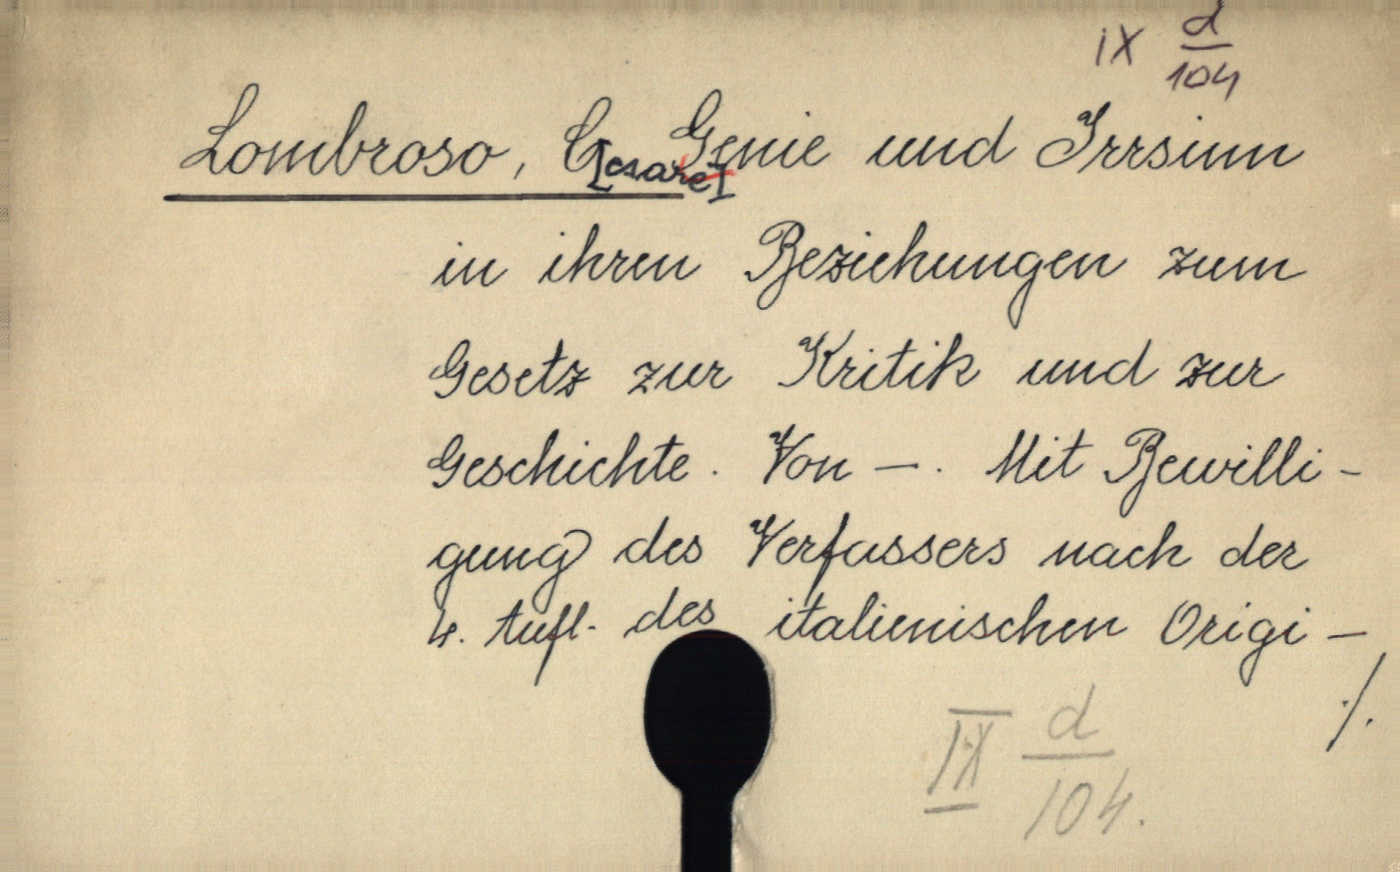 IX d/104
Lombroso, C[esare] Genie und Irrsinn
in ihren Beziehungen zum
Gesetz zur Kritik und zur
Geschichte. Von —. Mit Bewilli-
gung des Verfassers nach der
4. Aufl. des italienischen Origi-
./.
IX d/104.